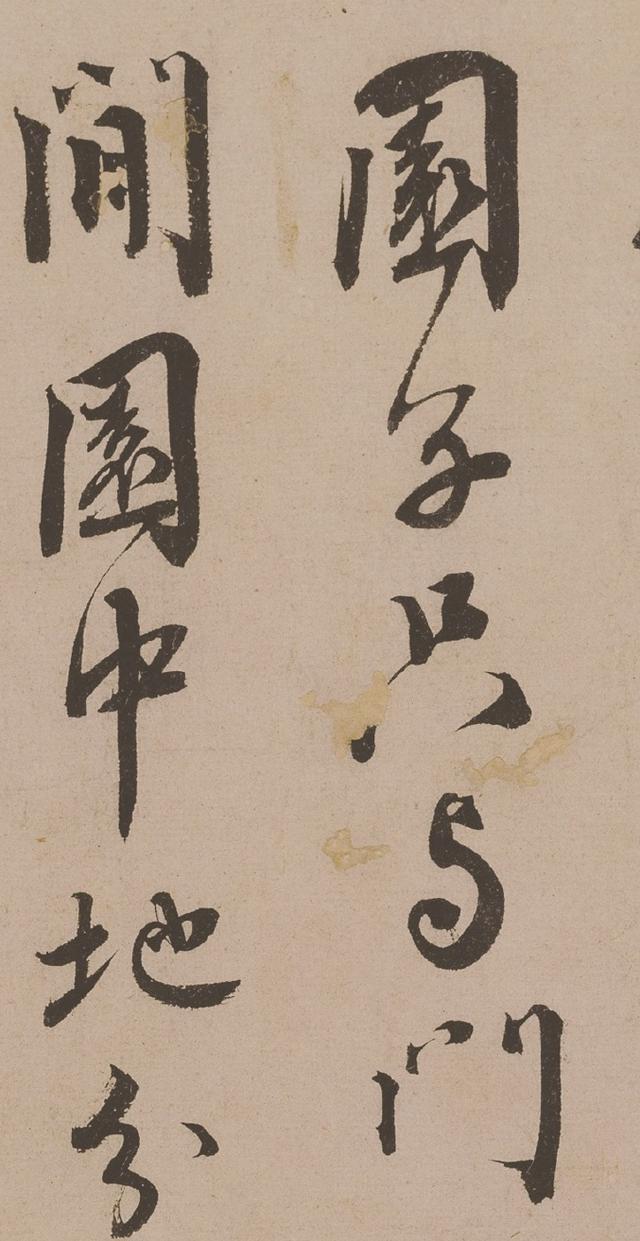 園子只与門
間園中地分